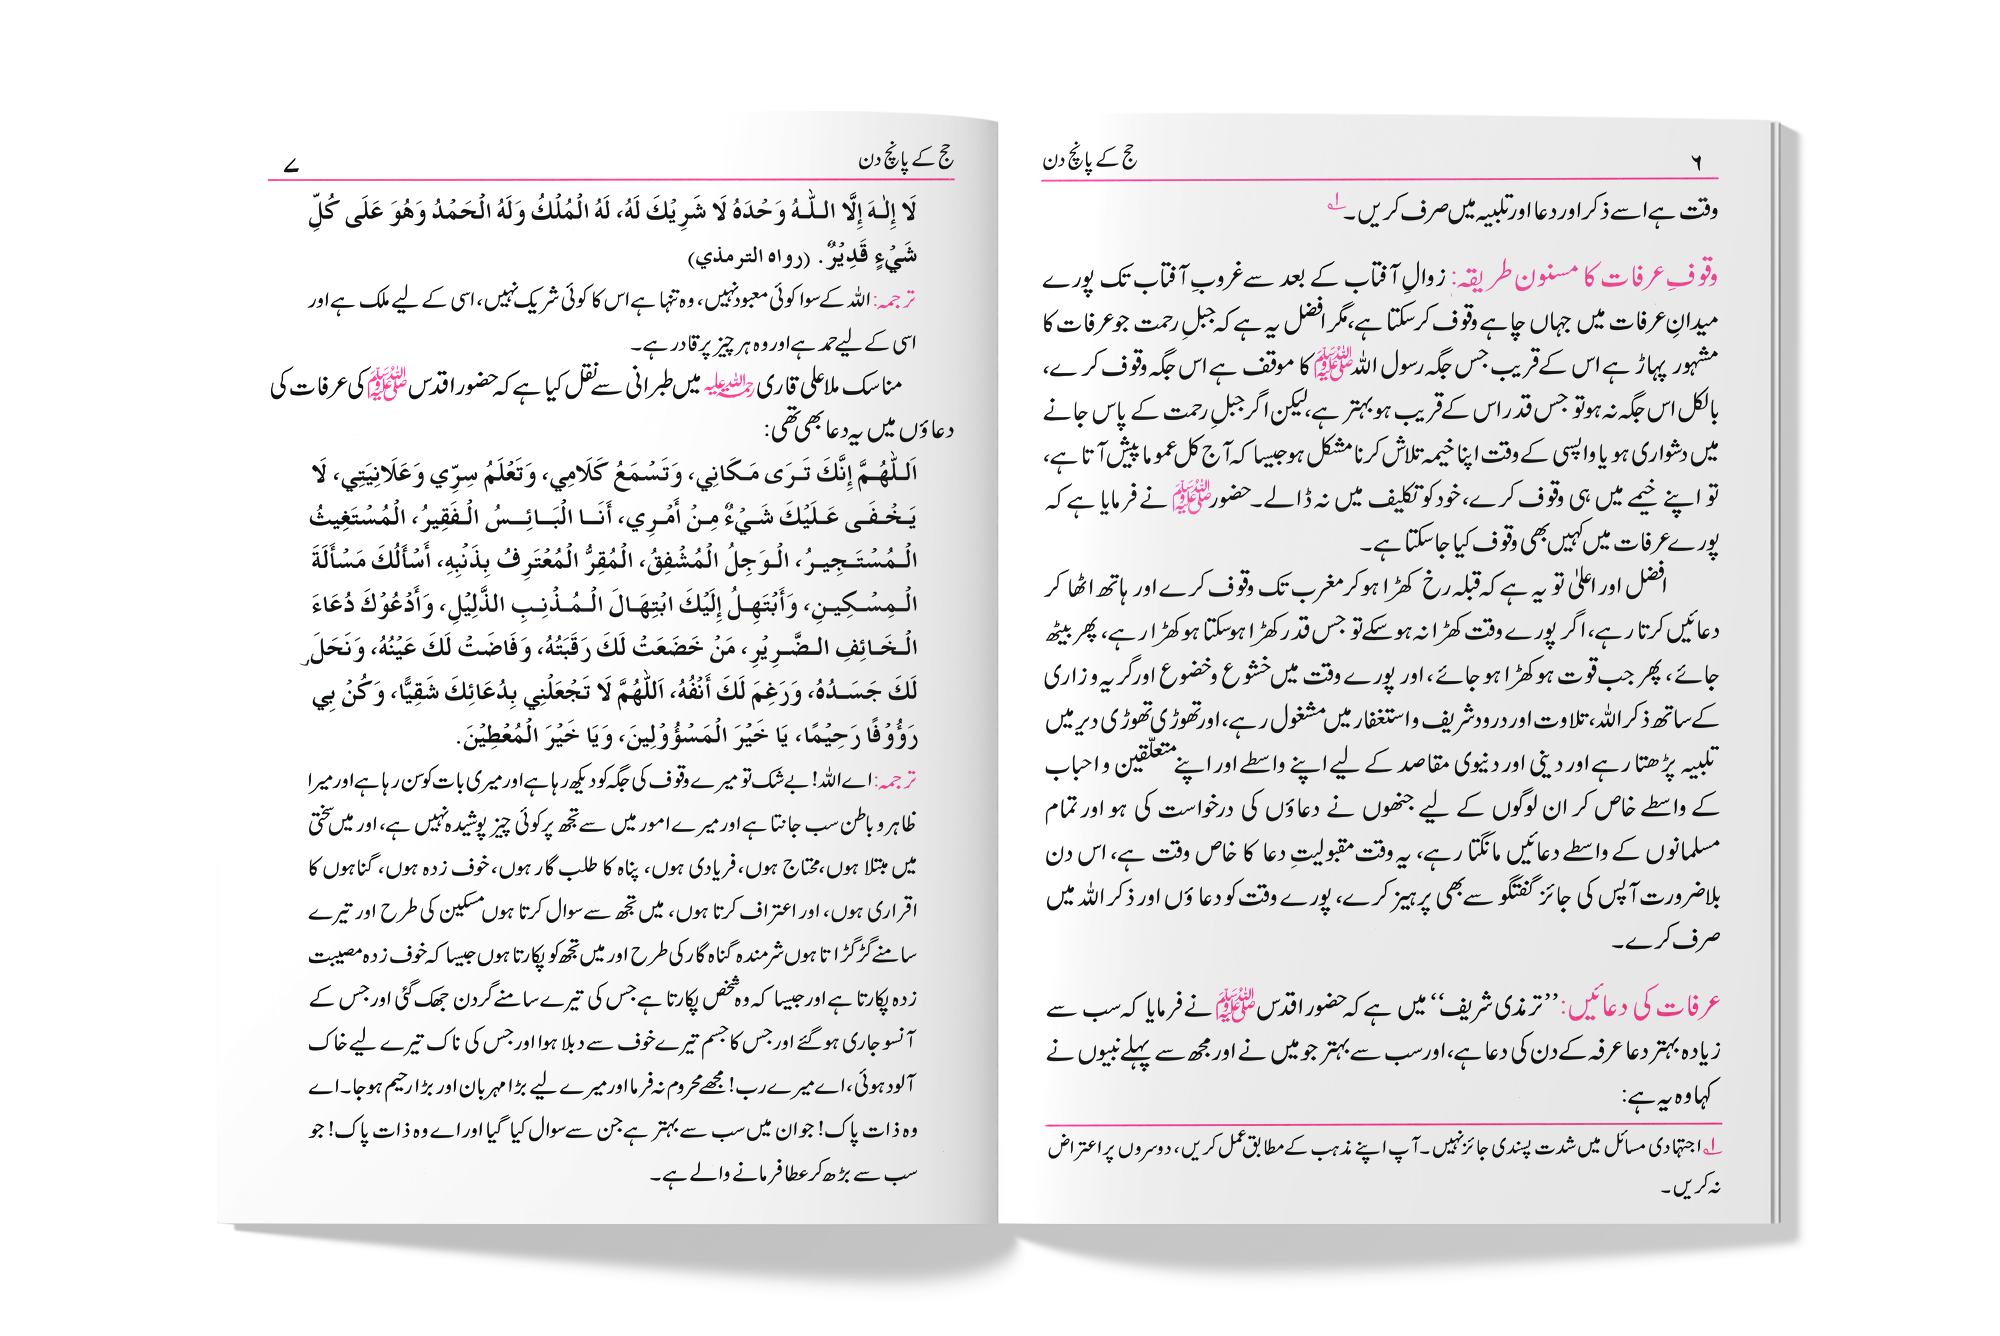 ۶
حج کے پانچ دن
وقت ہے اسے ذکر اور دعا اور تلبیہ میں صرف کریں۔ ۱؎
وقوفِ عرفات کا مسنون طریقہ: زوالِ آفتاب کے بعد سے غروبِ آفتاب تک پورے
میدانِ عرفات میں جہاں چاہے وقوف کرسکتا ہے، مگر افضل یہ ہے کہ جبلِ رحمت جو عرفات کا
مشہور پہاڑ ہے اس کے قریب جس جگہ رسول اللہ ﷺ کا موقف ہے اس جگہ وقوف کرے،
بالکل اس جگہ نہ ہو تو جس قدر اس کے قریب ہو بہتر ہے، لیکن اگر جبلِ رحمت کے پاس جانے
میں دشواری ہو یا واپسی کے وقت اپنا خیمہ تلاش کرنا مشکل ہو جیسا کہ آج کل عموما پیش آتا ہے،
تو اپنے خیمے میں ہی وقوف کرے، خود کو تکلیف میں نہ ڈالے۔ حضور ﷺ نے فرمایا ہے کہ
پورے عرفات میں کہیں بھی وقوف کیا جاسکتا ہے۔
افضل اور اعلیٰ تو یہ ہے کہ قبلہ رخ کھڑا ہو کر مغرب تک وقوف کرے اور ہاتھ اٹھا کر
دعائیں کرتا رہے، اگر پورے وقت کھڑا نہ ہوسکے تو جس قدر کھڑا ہوسکتا ہو کھڑا رہے، پھر بیٹھ
جائے، پھر جب قوت ہو کھڑا ہو جائے، اور پورے وقت میں خشوع و خضوع اور گریہ و زاری
کے ساتھ ذکر اللہ، تلاوت اور درود شریف و استغفار میں مشغول رہے، اور تھوڑی تھوڑی دیر میں
تلبیہ پڑھتا رہے اور دینی اور دنیوی مقاصد کے لیے اپنے واسطے اور اپنے متعلّقین و احباب
کے واسطے خاص کر ان لوگوں کے لیے جنھوں نے دعاؤں کی درخواست کی ہو اور تمام
مسلمانوں کے واسطے دعائیں مانگتا رہے، یہ وقت مقبولیتِ دعا کا خاص وقت ہے، اس دن
بلاضرورت آپس کی جائز گفتگو سے بھی پرہیز کرے، پورے وقت کو دعاؤں اور ذکر اللہ میں
صرف کرے۔
عرفات کی دعائیں: ’’ترمذی شریف‘‘ میں ہے کہ حضور اقدس ﷺ نے فرمایا کہ سب سے
زیادہ بہتر دعا عرفہ کے دن کی دعا ہے، اور سب سے بہتر جو میں نے اور مجھ سے پہلے نبیوں نے
کہا وہ یہ ہے:
۱؎ اجتہادی مسائل میں شدت پسندی جائز نہیں۔ آپ اپنے مذہب کے مطابق عمل کریں، دوسروں پر اعتراض
نہ کریں۔
حج کے پانچ دن
۷
لَا إِلٰهَ إِلَّا اللّٰهُ وَحْدَهُ لَا شَرِيْكَ لَهُ، لَهُ الْمُلْكُ وَلَهُ الْحَمْدُ وَهُوَ عَلَى كُلِّ
شَيْءٍ قَدِيْرٌ. (رواه الترمذي)
ترجمہ: اللہ کے سوا کوئی معبود نہیں، وہ تنہا ہے اس کا کوئی شریک نہیں، اسی کے لیے ملک ہے اور
اسی کے لیے حمد ہے اور وہ ہر چیز پر قادر ہے۔
مناسک ملا علی قاری رحمۃ اللہ علیہ میں طبرانی سے نقل کیا ہے کہ حضور اقدس ﷺ کی عرفات کی
دعاؤں میں یہ دعا بھی تھی:
اَللّٰهُمَّ إِنَّكَ تَرَى مَكَانِي، وَتَسْمَعُ كَلَامِي، وَتَعْلَمُ سِرِّي وَعَلَانِيَتِي، لَا
يَخْفَى عَلَيْكَ شَيْءٌ مِنْ أَمْرِي، أَنَا الْبَائِسُ الْفَقِيرُ، الْمُسْتَغِيثُ
الْمُسْتَجِيرُ، الْوَجِلُ الْمُشْفِقُ، الْمُقِرُّ الْمُعْتَرِفُ بِذَنْبِهِ، أَسْأَلُكَ مَسْأَلَةَ
الْمِسْكِينِ، وَأَبْتَهِلُ إِلَيْكَ ابْتِهَالَ الْمُذْنِبِ الذَّلِيْلِ، وَأَدْعُوْكَ دُعَاءَ
الْخَائِفِ الضَّرِيْرِ، مَنْ خَضَعَتْ لَكَ رَقَبَتُهُ، وَفَاضَتْ لَكَ عَيْنُهُ، وَنَحَلَ
لَكَ جَسَدُهُ، وَرَغِمَ لَكَ أَنْفُهُ، اَللّٰهُمَّ لَا تَجْعَلْنِي بِدُعَائِكَ شَقِيًّا، وَكُنْ بِي
رَؤُوْفًا رَحِيْمًا، يَا خَيْرَ الْمَسْؤُوْلِينَ، وَيَا خَيْرَ الْمُعْطِيْنَ.
ترجمہ: اے اللہ! بے شک تو میرے وقوف کی جگہ کو دیکھ رہا ہے اور میری بات کو سن رہا ہے اور میرا
ظاہر و باطن سب جانتا ہے اور میرے امور میں سے تجھ پر کوئی چیز پوشیدہ نہیں ہے، اور میں سختی
میں مبتلا ہوں، محتاج ہوں، فریادی ہوں، پناہ کا طلب گار ہوں، خوف زدہ ہوں، گناہوں کا
اقراری ہوں، اور اعتراف کرتا ہوں، میں تجھ سے سوال کرتا ہوں مسکین کی طرح اور تیرے
سامنے گڑگڑاتا ہوں شرمندہ گناہ گار کی طرح اور میں تجھ کو پکارتا ہوں جیسا کہ خوف زدہ مصیبت
زدہ پکارتا ہے اور جیسا کہ وہ شخص پکارتا ہے جس کی تیرے سامنے گردن جھک گئی اور جس کے
آنسو جاری ہوگئے اور جس کا جسم تیرے خوف سے دبلا ہوا اور جس کی ناک تیرے لیے خاک
آلود ہوئی، اے میرے رب! مجھے محروم نہ فرما اور میرے لیے بڑا مہربان اور بڑا رحیم ہوجا۔ اے
وہ ذات پاک! جو ان میں سب سے بہتر ہے جن سے سوال کیا گیا اور اے وہ ذات پاک! جو
سب سے بڑھ کر عطا فرمانے والے ہے۔